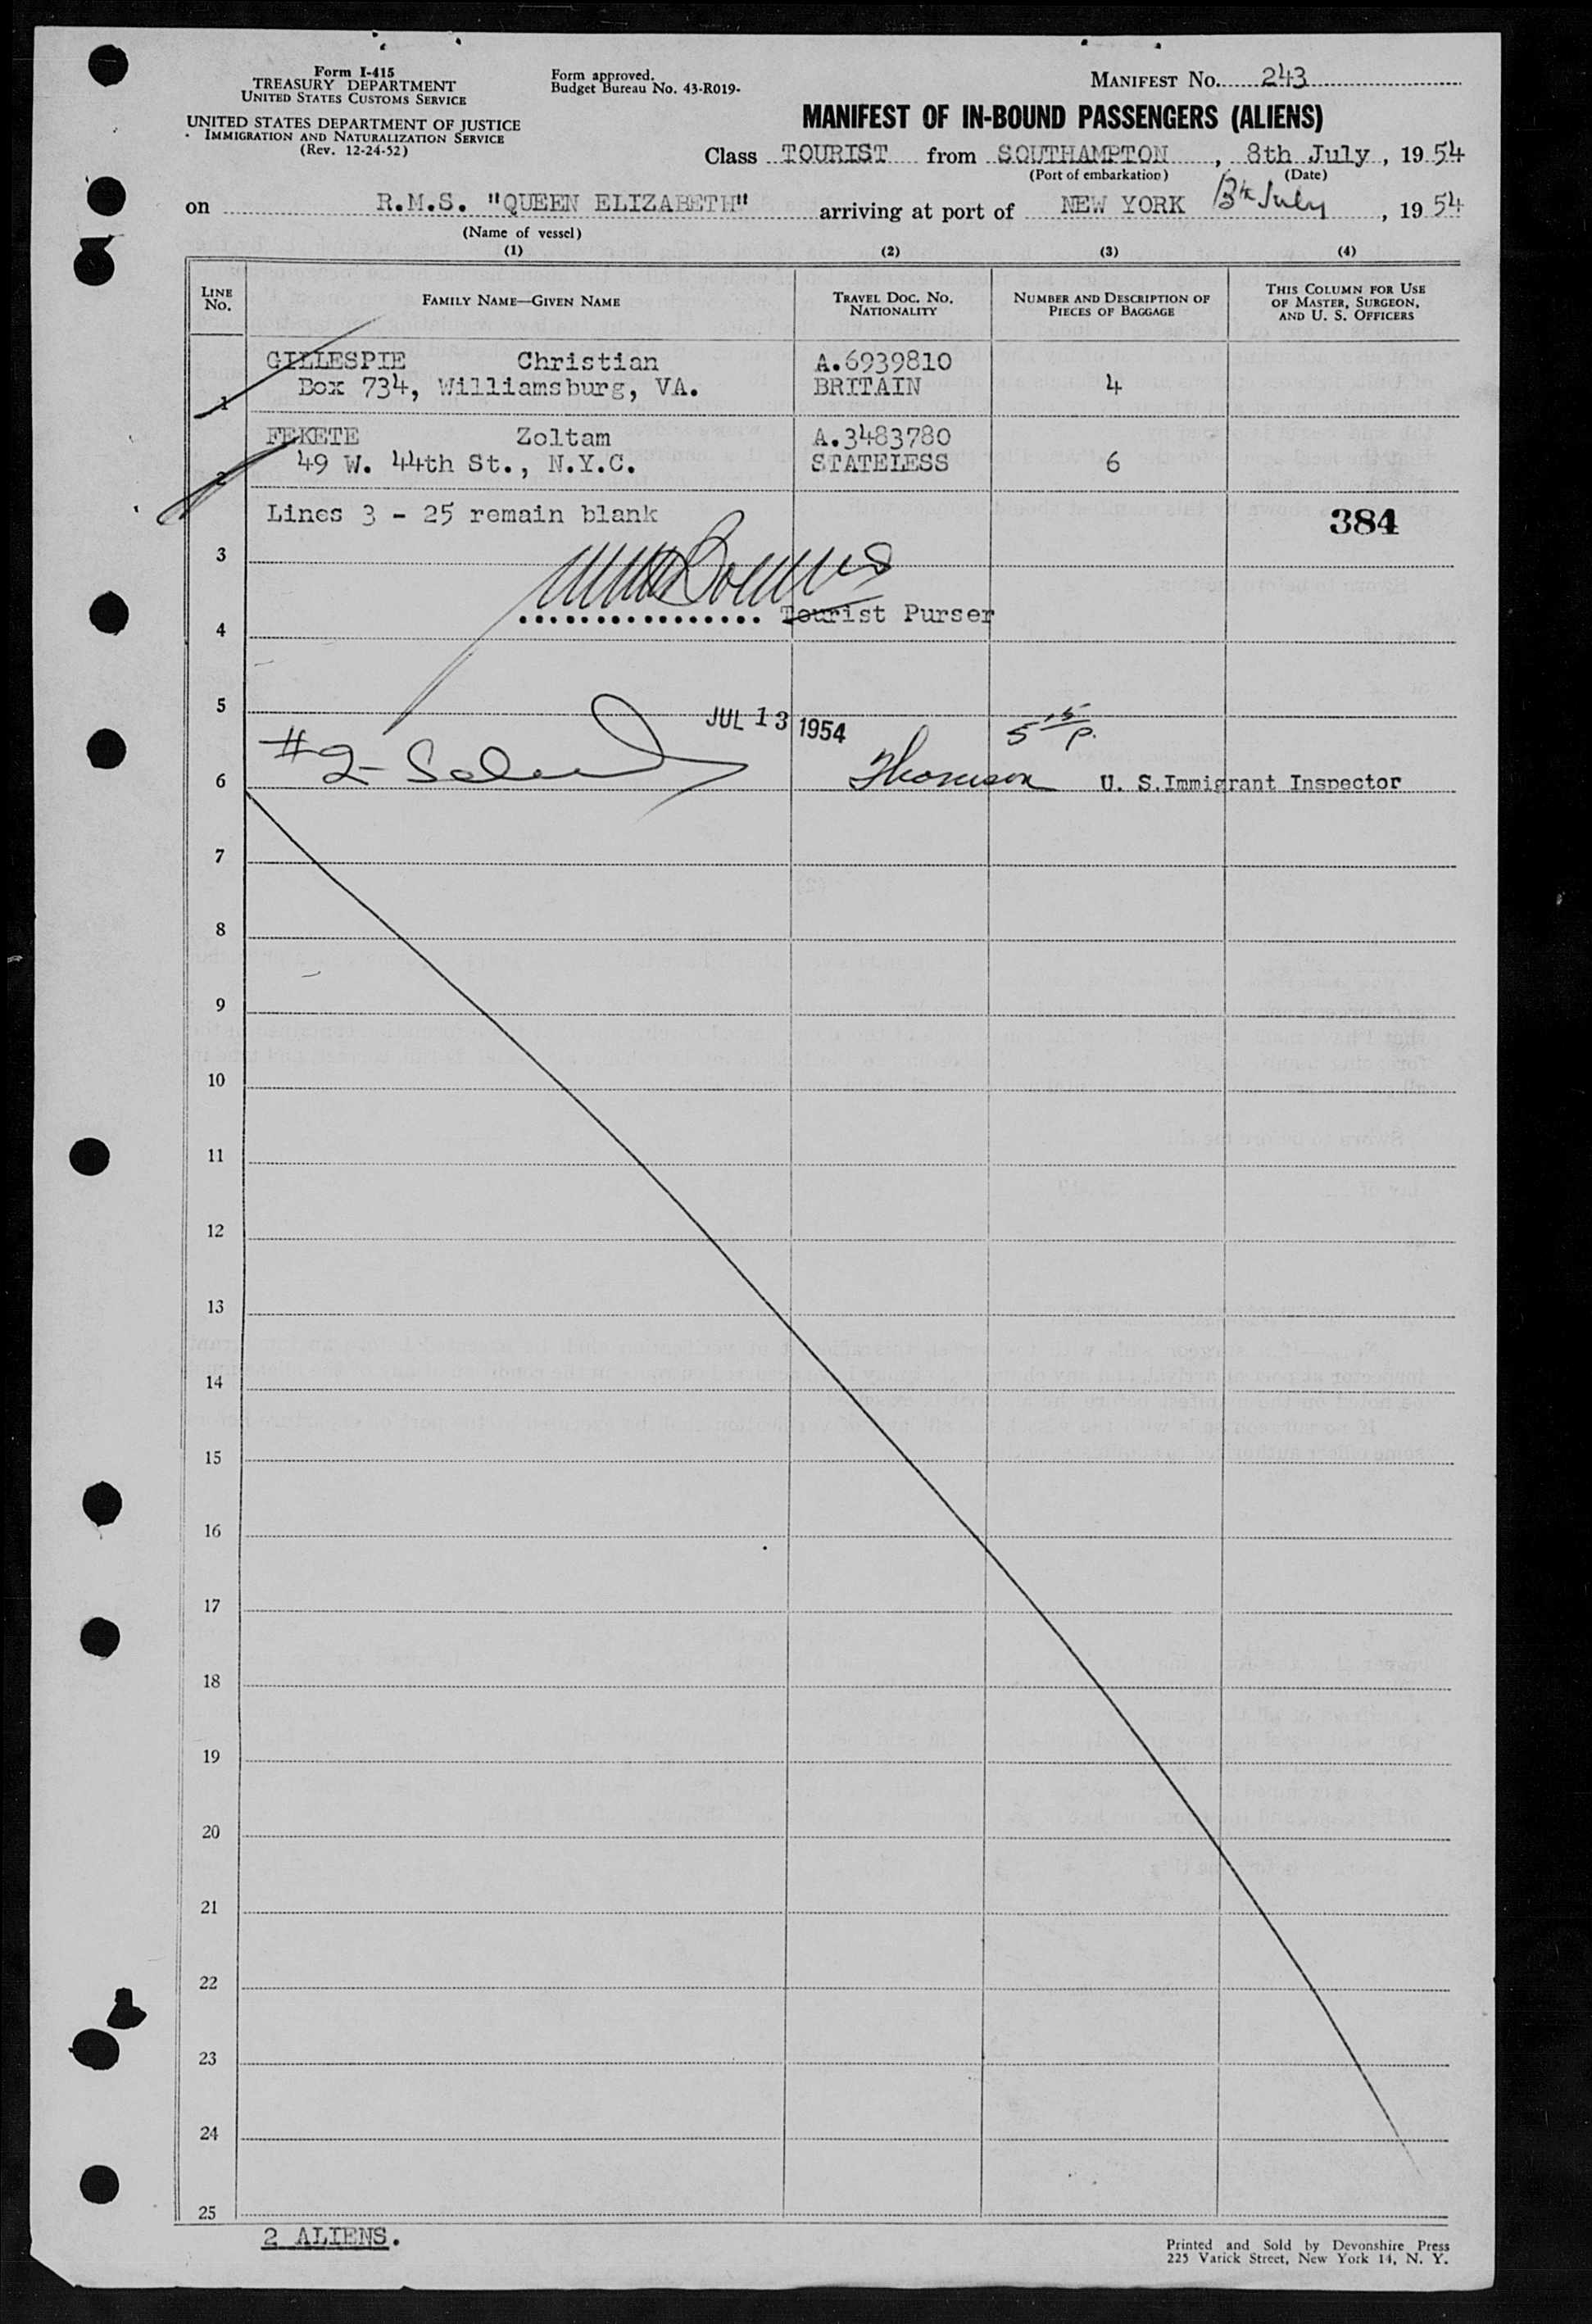 Form I-415
TREASURY DEPARTMENT
UNITED STATES CUSTOMS SERVICE
UNITED STATES DEPARTMENT OF JUSTICE
IMMIGRATION AND NATURALIZATION SERVICE
(Rev. 12-24-52)
Form approved.
Budget Bureau No. 43-R019-
MANIFEST No. 243
MANIFEST OF IN-BOUND PASSENGERS (ALIENS)
Class TOURIST from SOUTHAMPTON, 8th July, 1954
(Port of embarkation) (Date)
on R.M.S. "QUEEN ELIZABETH" arriving at port of NEW YORK 13th July, 1954
(Name of vessel)
(1) (2) (3) (4)
LINE No. FAMILY NAME—GIVEN NAME TRAVEL DOC. No. NATIONALITY NUMBER AND DESCRIPTION OF PIECES OF BAGGAGE THIS COLUMN FOR USE OF MASTER, SURGEON, AND U. S. OFFICERS
GILLESPIE Christian A.6939810
1 Box 734, Williamsburg, VA. BRITAIN 4
FEKETE Zoltam A.3483780
2 49 W. 44th St., N.Y.C. STATELESS 6
Lines 3 - 25 remain blank 384
3
4 ................ Tourist Purser
5
JUL 13 1954 5 15/P.
6 #2- Thomson U. S.Immigrant Inspector
7
8
9
10
11
12
13
14
15
16
17
18
19
20
21
22
23
24
25
2 ALIENS.
Printed and Sold by Devonshire Press
225 Varick Street, New York 14, N. Y.